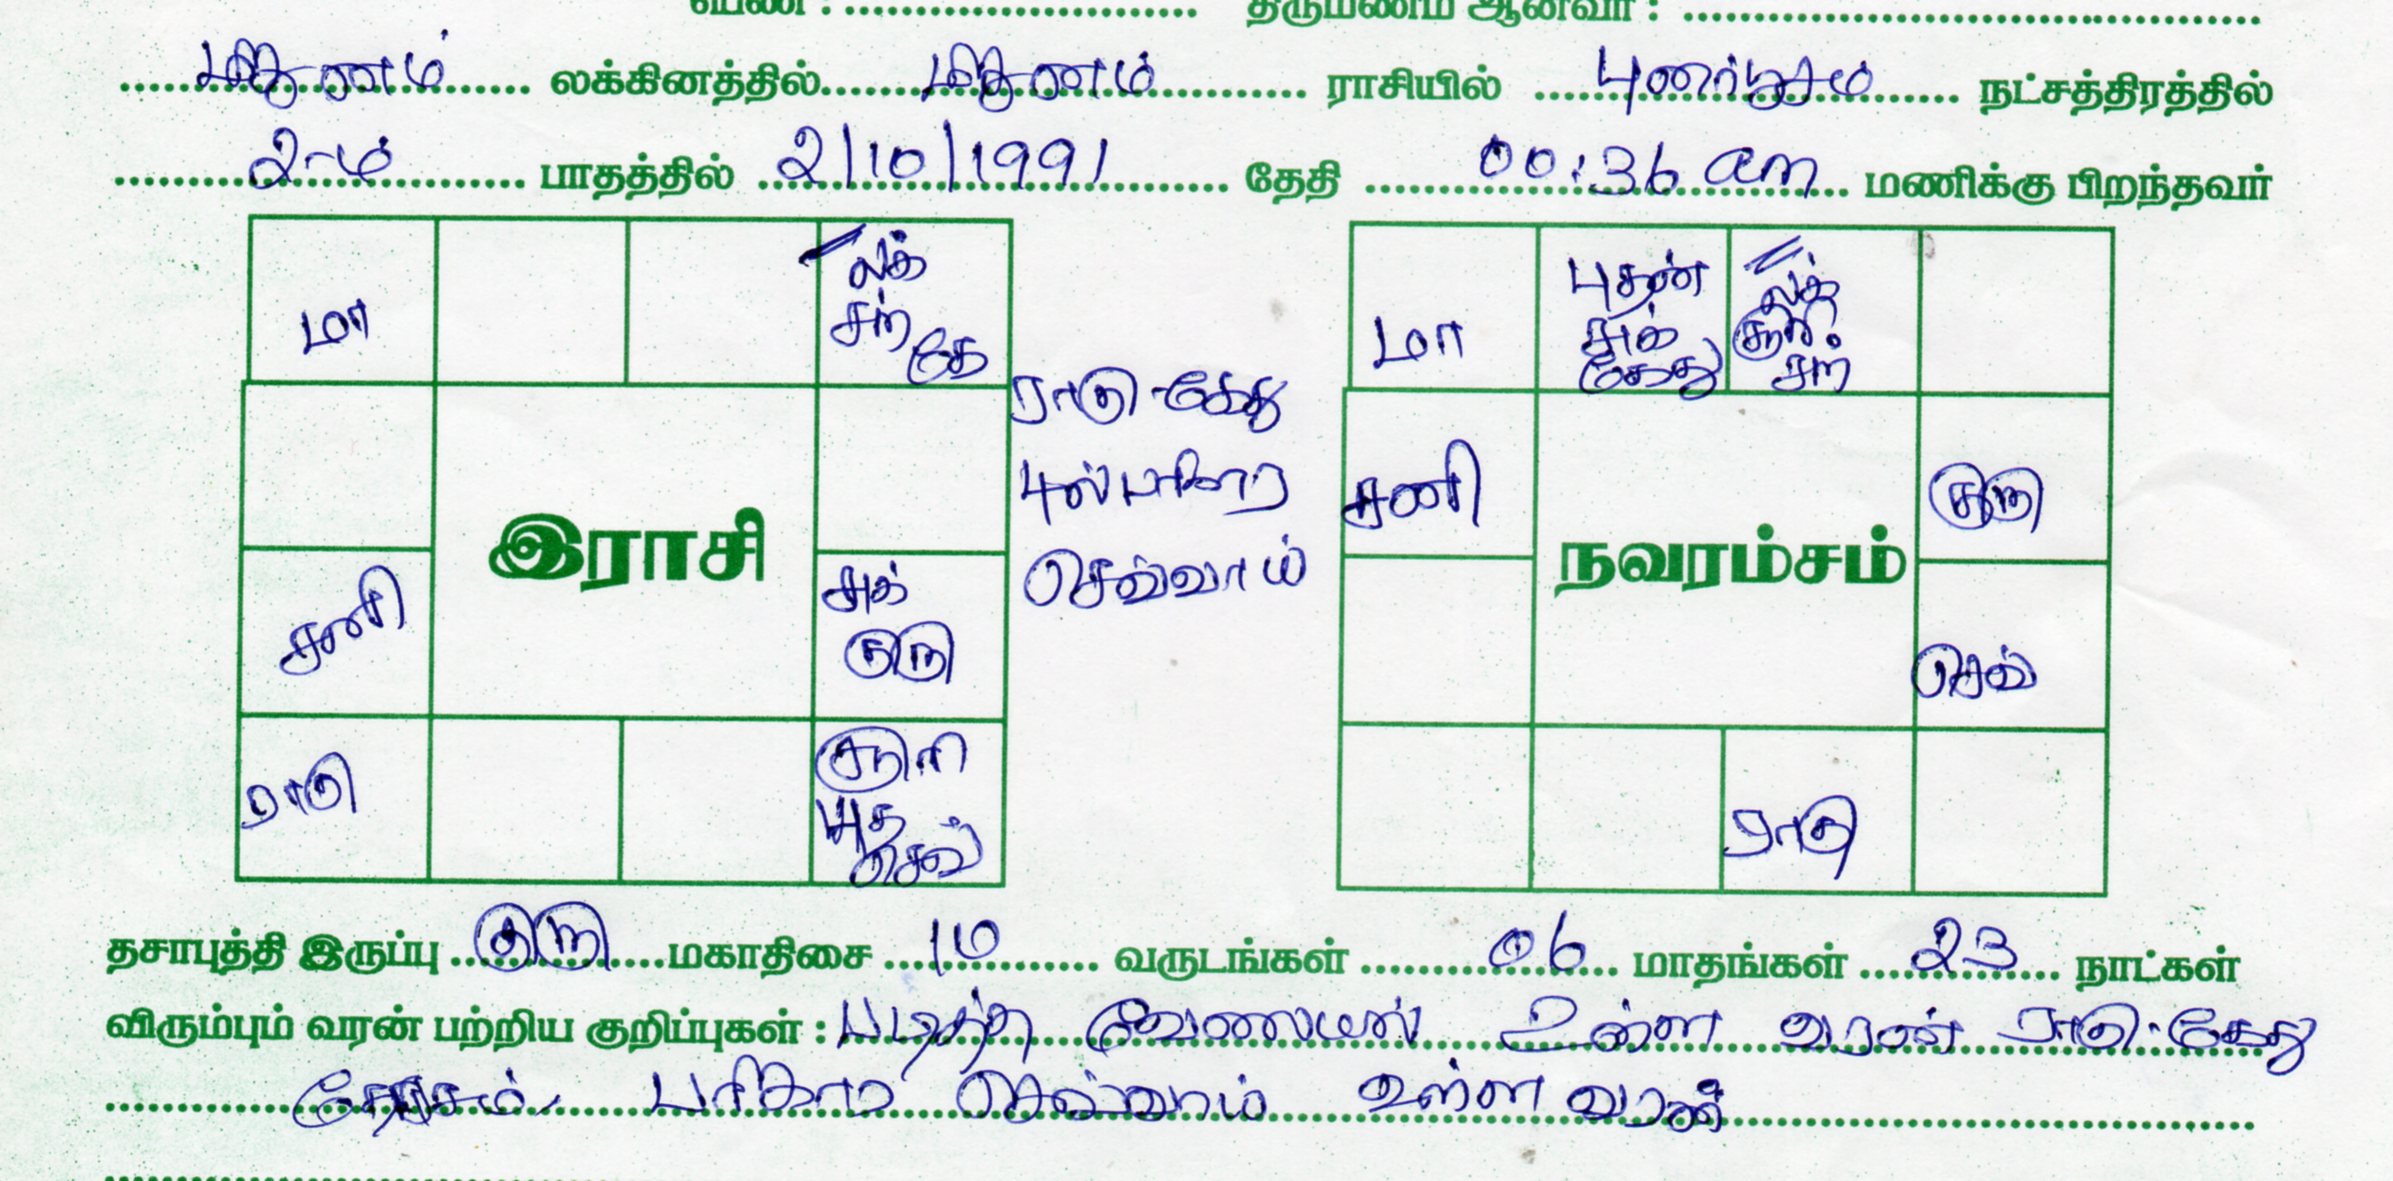 பெண் : .......................... திருமணம் ஆனவர் : ..........................
மிதுனம் லக்கினத்தில் மிதுனம் ராசியில் புனர்பூசம் நட்சத்திரத்தில்
2-ம் பாதத்தில் 2/10/1991 தேதி 00:36 am மணிக்கு பிறந்தவர்
மா
லக்
சந்
கே
சனி
இராசி
சுக்
குரு
ராகு
சூரி
புத
செவ்
ராகு-கேது
செவ்வாய்
மா
புதன்
சுக்
கேது
லக்
சூரி
சந்
சனி
நவரம்சம்
குரு
செவ்
ராகு
தசாபுத்தி இருப்பு குரு மகாதிசை 10 வருடங்கள் 06 மாதங்கள் 23 நாட்கள்
விரும்பும் வரன் பற்றிய குறிப்புகள் : படித்த வேலையில் உள்ள வரன் ராகு-கேது
பரிகார செவ்வாய் உள்ள வரன்